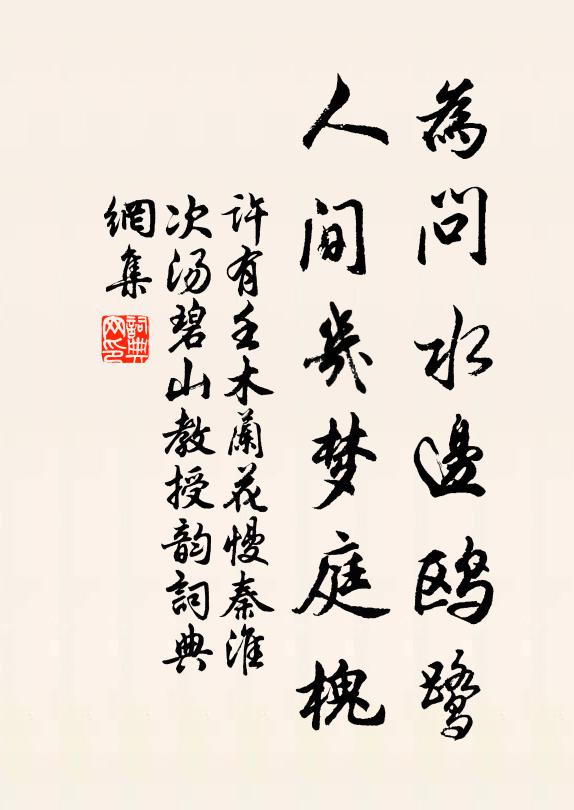 為问水邊鸥鹭
人间幾梦庭槐
許有壬木蘭花慢秦淮
次汤碧山教授韵詞典
網集
詞典
网印